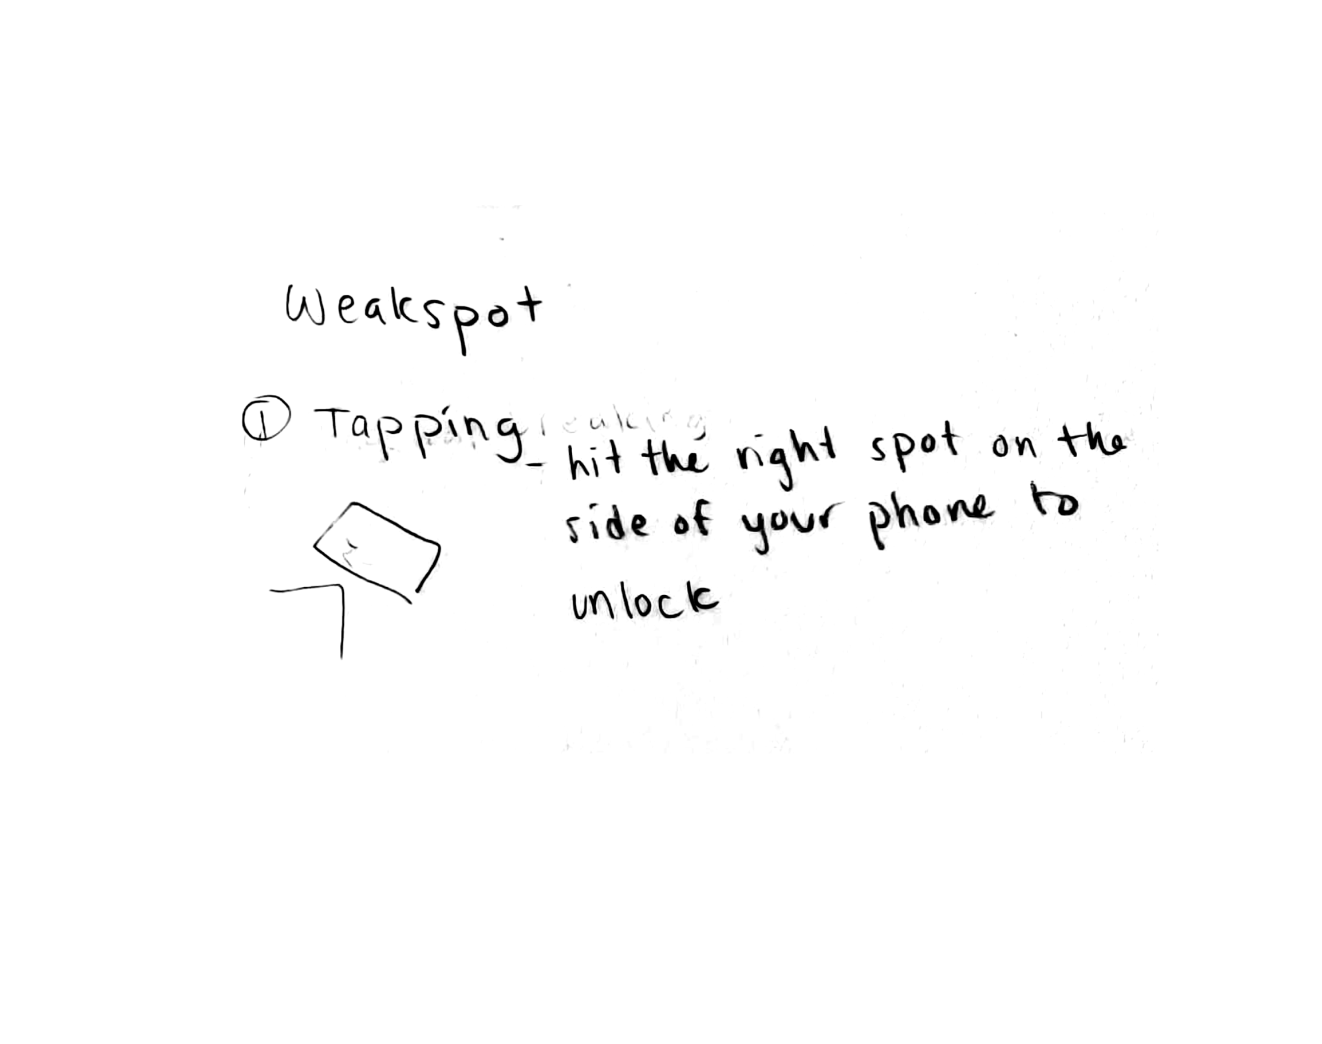 Weakspot
① Tapping - hit the right spot on the
side of your phone to
unlock